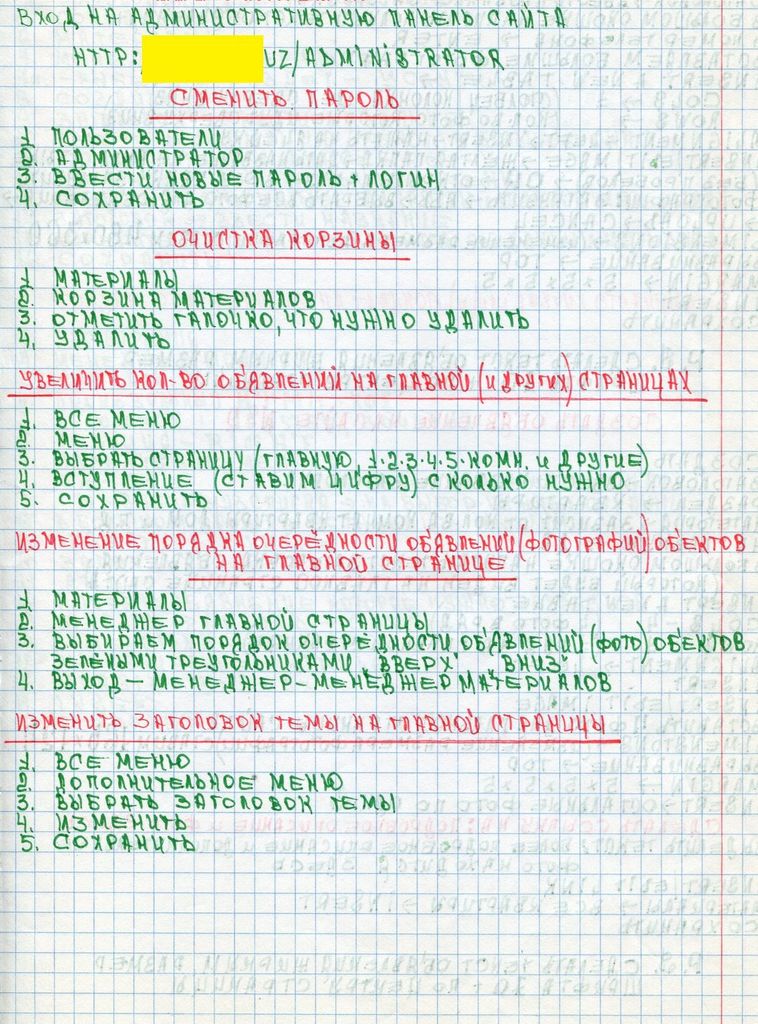 ВХОД НА АДМИНИСТРАТИВНУЮ ПАНЕЛЬ САЙТА
HTTP: UZ/ADMINISTRATOR
СМЕНИТЬ ПАРОЛЬ
1. ПОЛЬЗОВАТЕЛИ
2. АДМИНИСТРАТОР
3. ВВЕСТИ НОВЫЕ ПАРОЛЬ + ЛОГИН
4. СОХРАНИТЬ
ОЧИСТКА КОРЗИНЫ
1. МАТЕРИАЛЫ
2. КОРЗИНА МАТЕРИАЛОВ
3. ОТМЕТИТЬ ГАЛОЧКО, ЧТО НУЖНО УДАЛИТЬ
4. УДАЛИТЬ
УВЕЛИЧИТЬ КОЛ-ВО ОБ'ЯВЛЕНИЙ НА ГЛАВНОЙ (и ДРУГИХ) СТРАНИЦАХ
1. ВСЕ МЕНЮ
2. МЕНЮ
3. ВЫБРАТЬ СТРАНИЦУ (ГЛАВНУЮ, 1·2·3·4·5·КОМН. и ДРУГИЕ)
4. ВСТУПЛЕНИЕ (СТАВИМ ЦИФРУ) СКОЛЬКО НУЖНО
5. СОХРАНИТЬ
ИЗМЕНЕНИЕ ПОРЯДКА ОЧЕРЁДНОСТИ ОБ'ЯВЛЕНИЙ (ФОТОГРАФИЙ) ОБ'ЕКТОВ
НА ГЛАВНОЙ СТРАНИЦЕ
1. МАТЕРИАЛЫ
2. МЕНЕДЖЕР ГЛАВНОЙ СТРАНИЦЫ
3. ВЫБИРАЕМ ПОРЯДОК ОЧЕРЁДНОСТИ ОБ'ЯВЛЕНИЙ (ФОТО) ОБ'ЕКТОВ
ЗЕЛЁНЫМИ ТРЕУГОЛЬНИКАМИ „ВВЕРХ" „ВНИЗ"
4. ВЫХОД — МЕНЕДЖЕР — МЕНЕДЖЕР МАТЕРИАЛОВ
ИЗМЕНИТЬ ЗАГОЛОВОК ТЕМЫ НА ГЛАВНОЙ СТРАНИЦЫ
1. ВСЕ МЕНЮ
2. ДОПОЛНИТЕЛЬНОЕ МЕНЮ
3. ВЫБРАТЬ ЗАГОЛОВОК ТЕМЫ
4. ИЗМЕНИТЬ
5. СОХРАНИТЬ